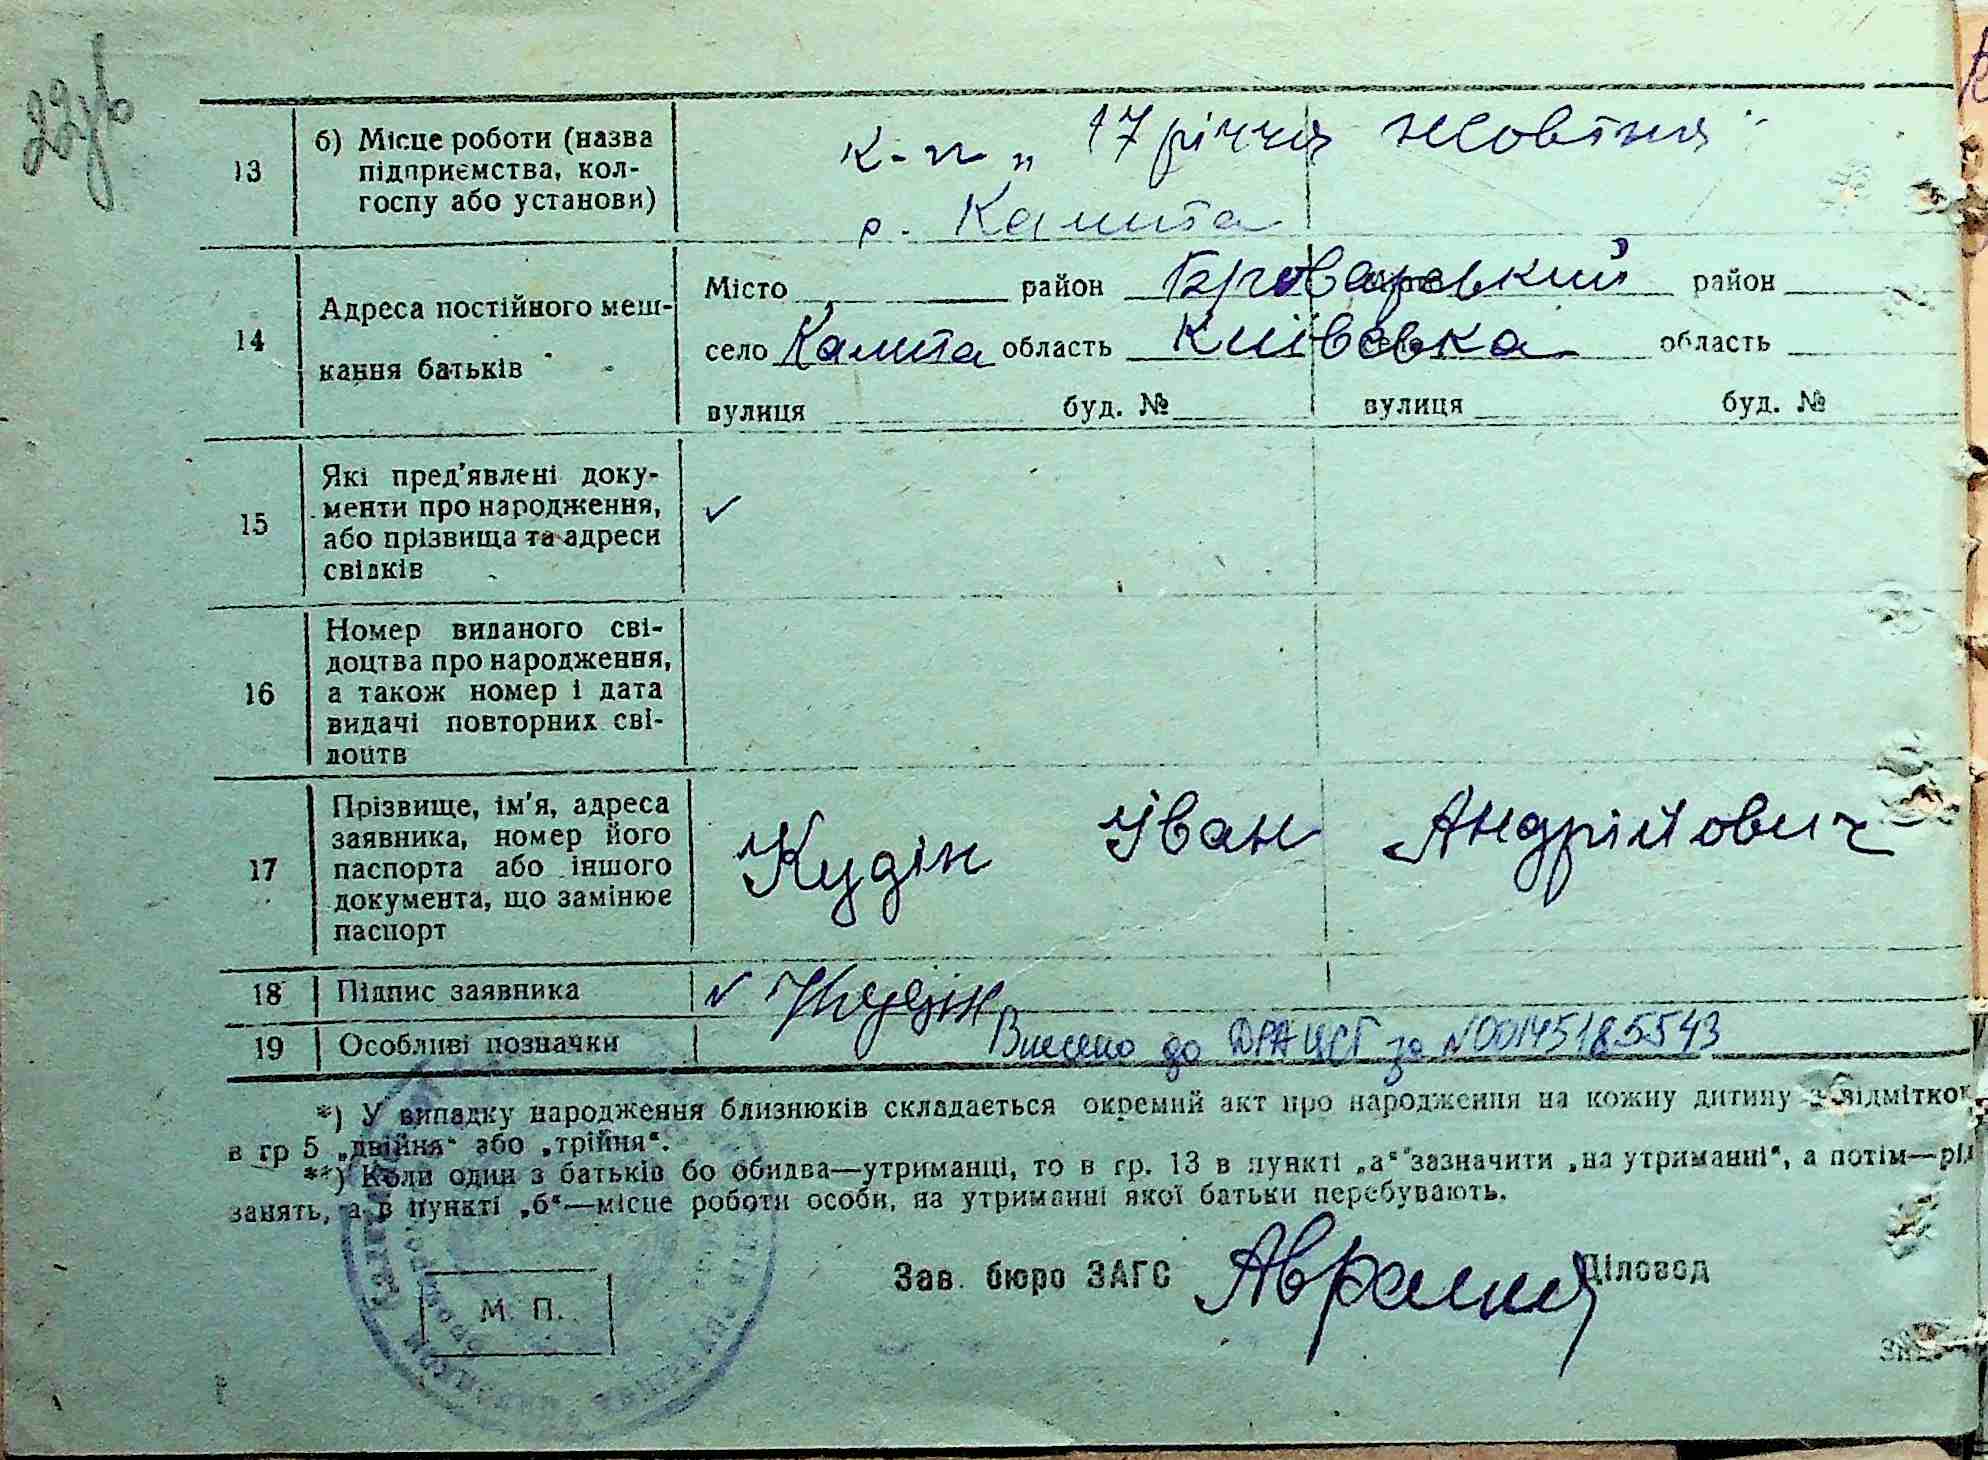 22зв
13
б) Місце роботи (назва
підприємства, кол-
госпу або установи)
к-п „17 річчя Жовтня"
с. Калита
14
Адреса постійного меш-
кання батьків
Місто район Броварський район
село Калита область Київська область
вулиця буд. № вулиця буд. №
15
Які пред'явлені доку-
менти про народження,
або прізвища та адреси
свідків
✓
16
Номер виданого сві-
доцтва про народження,
а також номер і дата
видачі повторних сві-
доцтв
17
Прізвище, ім'я, адреса
заявника, номер його
паспорта або іншого
документа, що замінює
паспорт
Кудін Іван Андрійович
18 Підпис заявника ✓ Кудін
19 Особливі позначки Внесено до ДРАЦСГ за №00145185543
*) У випадку народження близнюків складається окремий акт про народження на кожну дитину з відміткою
в гр 5 „двійня“ або „трійня“.
**) Коли один з батьків бо обидва—утриманці, то в гр. 13 в пункті „а“ зазначити „на утриманні“, а потім—рід
занять, а в пункті „б“—місце роботи особи, на утриманні якої батьки перебувають.
Зав. бюро ЗАГС Діловод
М. П.